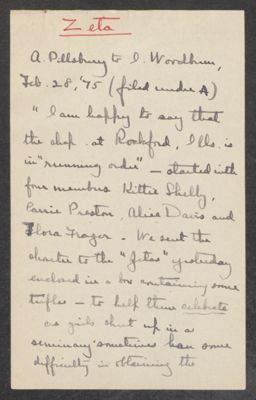 Zeta
A. Pillsbury to I. Wordhum,
Feb. 28, '75 (filed under A)
"I am happy to say that
the chap. at Rockford, Ills. is
in "running order" – started with
four members Kittie Shelly,
Carrie Preston, Alice Davis and
Flora Frazer. – We sent the
charter to the "Zetas" yesterday
enclosed in a box containing some
trifles – to help them celebrate
as girls shut up in a
seminary sometimes have some
difficulty in obtaining the